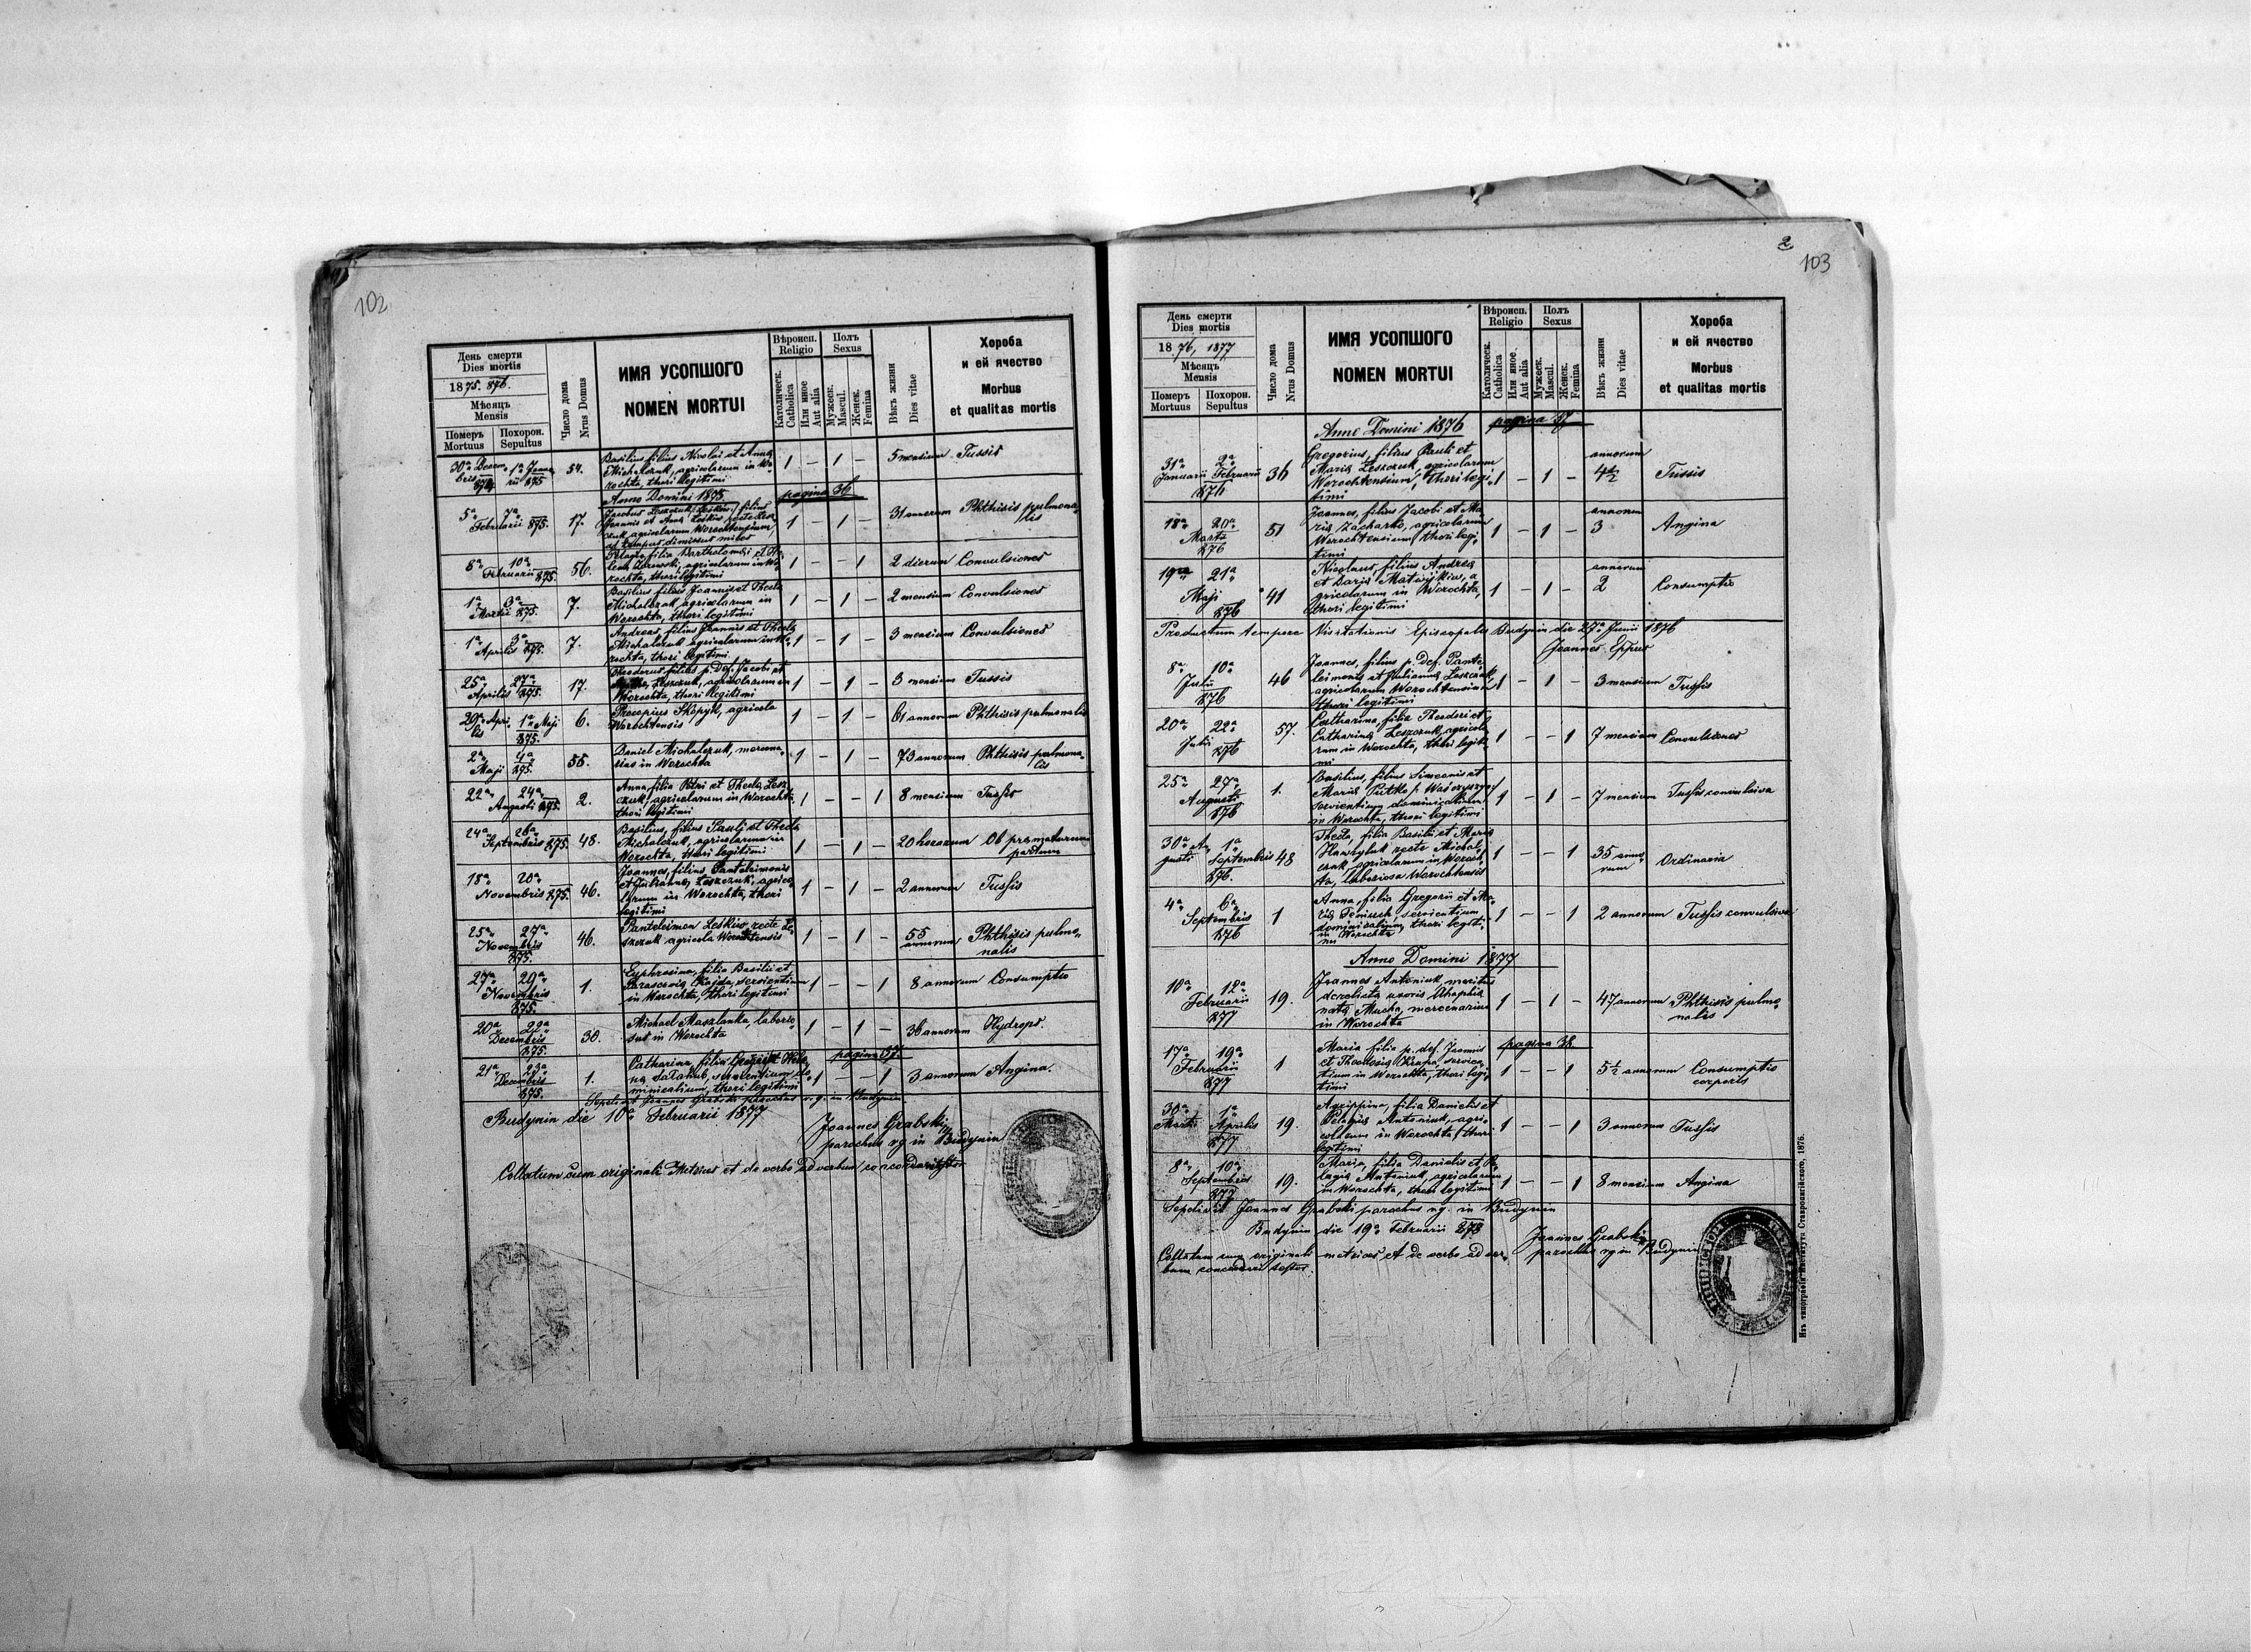 102
День смерти
Dies mortis
1875. 876.
Мѣсяцъ
Mensis
Померъ Похорон.
Mortuus Sepultus
Число дома
Nrus Domus
ИМЯ УСОПШОГО
NOMEN MORTUI
Вѣроисп.
Religio
Католическ.
Catholica
Или иное
Aut alia
Полъ
Sexus
Мужеск.
Mascul.
Женск.
Femina
Вѣкъ жизни
Dies vitae
Хороба
и ей ячество
Morbus
et qualitas mortis
30a Decem- 1a Janua-
bris 874 rii 875 54. Basilius filius Nicolai et Anna
Michalczuk, agricolarum in Wo-
rochta, thori legitimi 1 – 1 – 5 mensium Tussis
Anno Domini 1875 pagina 36
5a 7a Februarii 875. 17. Jacobus Leszczuk filius
Joannis et Anna
agricolarum Worochtensium,
ad tempus dimissus miles 1 – 1 – 31 annorum Phthisis pulmona-
lis
8a 10a Februarii 875. 56. Pelagia, filia Bartholomaei et He-
lena agricolarum in Wo-
rochta, thori legitimi 1 – – 1 2 dierum Convulsiones
1a 3a Martii 875. 7. Basilius filius Joannis et Thecla
Michalczuk agricolarum in
Worochta, thori legitimi 1 – 1 – 2 mensium Convulsiones
1a 3a Aprilis 875. 7. Andreas, filius Joannis et Thecla
Michalczuk agricolarum in Wo-
rochta, thori legitimi 1 – 1 – 3 mensium Convulsiones
25a 27a Aprilis 875. 17. Theodorus filius p. def. Jacobi et
Leszczuk, agricolarum in
Worochta, thori legitimi 1 – 1 – 3 mensium Tussis
29a Apri- 1a Maji
lis 875. 6. Procopius Skopyk, agricola
Worochtensis 1 – 1 – 61 annorum Phthisis pulmonalis
2a 4a Maji 875. 55. Daniel Michalczuk, mercena-
rius in Worochta 1 – 1 – 73 annorum Phthisis pulmona-
lis
22a 24a Augusti 875. 2. Anna filia Petri et Thecla Lesz-
czuk, agricolarum in Worochta,
thori legitimi 1 – – 1 8 mensium Tussis
24a 26a Septembris 875. 48. Basilius, filius Pauli et Thecla
Michalczuk, agricolarum in
Worochta, thori legitimi 1 – 1 – 20 horarum Ob praematurum
partum
18a 20a Novembris 875. 46. Joannes, filius Panteleimonis
et Juliana Leszczuk, agrico-
larum in Worochta, thori
legitimi 1 – 1 – 2 annorum Tussis
25a 27a Novembris
875. 46. Panteleimon Leskiw recte Le-
szczuk agricola Worochtensis 1 – 1 – 55
annorum Phthisis pulmo-
nalis
27a 29a Novembris
875. 1. Euphrosina, filia Basilii et
Parascevia servientium
in Worochta, thori legitimi 1 – – 1 8 annorum Consumptio
20a 22a Decembris
875. 30. Michael Maszlanka, laborio-
sus in Worochta 1 – 1 – 36 annorum Hydrops.
pagina 37.
21a 23a Decembris
875. 1. Catharina, filia
servientium do-
minicalium, thori legitimi 1 – – 1 3 annorum Angina.
Sepelivit Joannes Grabski parochus r. g. in Budynin
Budynin die 10a Februarii 1877
Joannes Grabski
parochus rg in Budynin
Collatum cum originali Metrices et de verbo ad verbum concordari testor
2
103
День смерти
Dies mortis
1876, 1877
Мѣсяцъ
Mensis
Померъ Похорон.
Mortuus Sepultus
Число дома
Nrus Domus
ИМЯ УСОПШОГО
NOMEN MORTUI
Вѣроисп.
Religio
Католическ.
Catholica
Или иное
Aut alia
Полъ
Sexus
Мужеск.
Mascul.
Женск.
Femina
Вѣкъ жизни
Dies vitae
Хороба
и ей ячество
Morbus
et qualitas mortis
Anno Domini 1876 pagina 37
31a 2a
Januarii Februarii
876 36 Gregorius, filius Pauli et
Maria Leszczuk, agricolarum
Worochtensium, thori legi-
timi 1 – 1 – annorum
4½ Tussis
18a 20a
Martii
876 51 Joannes, filius Jacobi et Ma-
ria Zacharko, agricolarum
Worochtensium, thori legi-
timi 1 – 1 – annorum
3 Angina
19a 21a
Maji
876 41 Nicolaus, filius Andrea
et Daria Matwijkiw, a-
gricolarum in Worochta,
thori legitimi 1 – 1 – annorum
2 Consumptio
Productum tempore Visitationis Episcopalis Budynin die 27a Junii 1876
Joannes Eppus
8a 10a
Julii
876 46 Joannes, filius p. def. Pante-
leimonis et Juliana Leszczuk,
agricolarum Worochtensium
thori legitimi 1 – 1 – 3 mensium Tussis
20a 22a
Julii
876 57. Catharina, filia Theodori et
Catharina Leszczuk, agricola-
rum in Worochta, thori legiti-
mi 1 – – 1 7 mensium Convulsiones
25a 27a
Augusti
876 1. Basilius, filius Simeonis et
Maria Putko
servientium dominicalium
in Worochta, thori legitimi 1 – 1 – 7 mensium Tussis convulsiva
30a Au- 1a
gusti Septembris
876. 48 Thecla, filia Basilii et Maria
Hawryluk recte Michal-
czuk, agricolarum in Woroch-
ta, laboriosa Worochtensis 1 – – 1 35 anno-
rum Ordinaria
4a 6a
Septembris
876 1 Anna, filia Gregorii et Ma-
ria servientium
dominicalium, thori legiti-
mi in Worochta 1 – – 1 2 annorum Tussis convulsiva
Anno Domini 1877
10a 12a
Februarii
877 19. Joannes Antoniuk maritus
derelicta uxoris Ahaphia
nata Mucha, mercenarius
in Worochta 1 – 1 – 47 annorum Phthisis pulmo-
nalis
pagina 38
17a 19a
Februarii
877 1 Maria filia p. def. Joannis
et Theodosia servien-
tium in Worochta, thori legi-
timi 1 – – 1 5½ annorum Consumptio
corporis
30a 1a
Martii Aprilis
877 19. Agrippina, filia Danielis et
Pelagia Antoniuk, agri-
colarum in Worochta, thori
legitimi 1 – – 1 3 annorum Tussis
8a 10a
Septembris
877 19. Maria, filia Danielis et Pe-
lagia Antoniuk, agricolarum
in Worochta, thori legitimi 1 – – 1 8 mensium Angina
Sepelivit Joannes Grabski parochus rg. in Budynin
Budynin die 19a Februarii 878
Joannes Grabski
parochus rg in Budynin
Collatum cum originali metrices et de verbo ad ver-
bum concordari testor.
Изъ типографіи Института Ставропигійского, 1876.